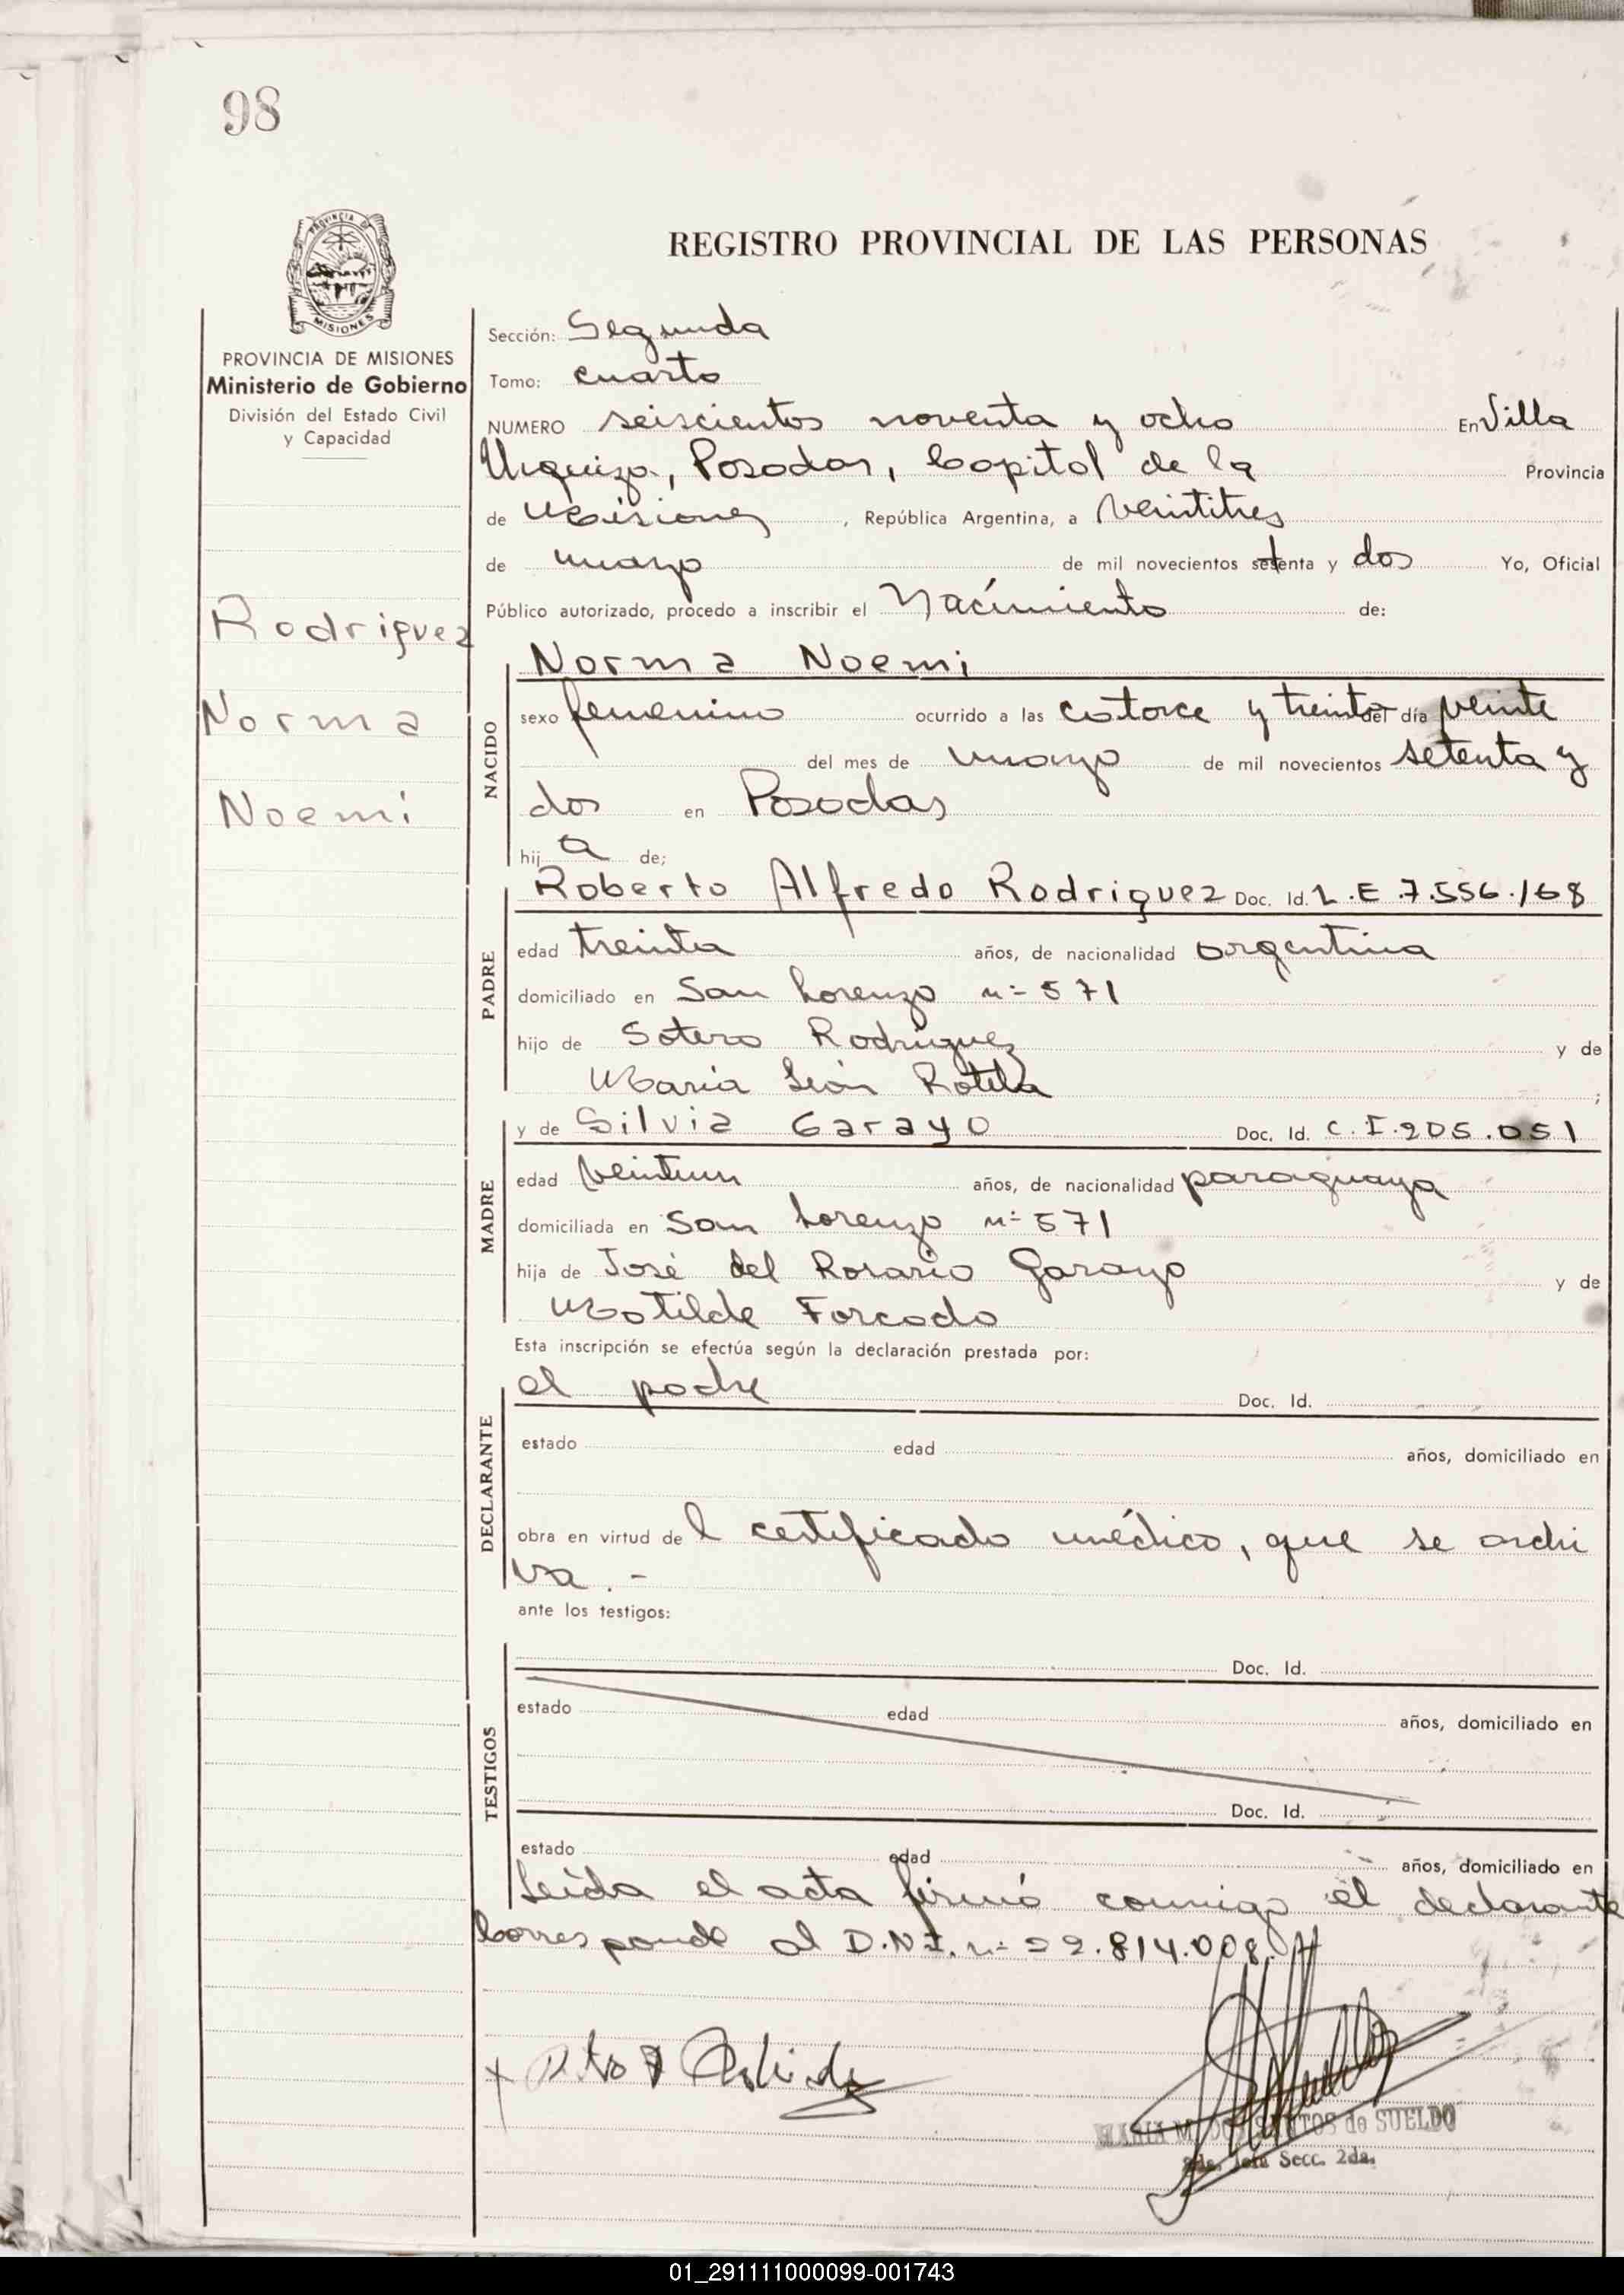 98
PROVINCIA DE
MISIONES
REGISTRO PROVINCIAL DE LAS PERSONAS
PROVINCIA DE MISIONES
Ministerio de Gobierno
División del Estado Civil
y Capacidad
Rodriguez
Norma
Noemi
Sección: Segunda
Tomo: cuarto
NUMERO seiscientos noventa y ocho En Villa
Urquiza, Posadas, Capital de la Provincia
de Misiones, República Argentina, a veintitres
de mayo de mil novecientos setenta y dos Yo, Oficial
Público autorizado, procedo a inscribir el Nacimiento de:
NACIDO
Norma Noemi
sexo femenino ocurrido a las catorce y treinta del día veinte
del mes de mayo de mil novecientos setenta y
dos en Posadas
hij a de;
PADRE
Roberto Alfredo Rodriguez Doc. Id. L.E.7.556.168
edad treinta años, de nacionalidad argentina
domiciliado en San Lorenzo nº 571
hijo de Sotero Rodriguez y de
Maria León Rotela ;
MADRE
y de Silvia Garayo Doc. Id. C.I.205.051
edad veintiun años, de nacionalidad paraguaya
domiciliada en San Lorenzo nº 571
hija de José del Rosario Garayo y de
Matilde Forcado
Esta inscripción se efectúa según la declaración prestada por:
DECLARANTE
el padre Doc. Id.
estado edad años, domiciliado en
obra en virtud de l certificado médico, que se archi
va. -
ante los testigos:
TESTIGOS
Doc. Id.
estado edad años, domiciliado en
Doc. Id.
estado edad años, domiciliado en
Leída el acta firmó conmigo el declarante
Corresponde al D.N.I. nº 22.814.008.
MARIA M. DOS SANTOS de SUELDO
Secc. 2da.
01_291111000099-001743